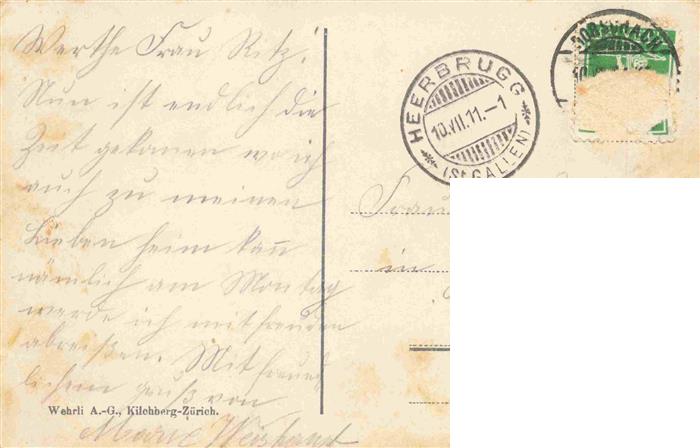 Werthe Frau Ritz!
Nun ist endlich die
Zeit gekomen wo ich
auch zu meinen
Lieben heim kan
nämlich am Montag
werde ich mit freuden
abreißen. Mit freund
lichem gruß von
Marie
Wehrli A.-G., Kilchberg-Zürich.
HEERBRUGG
10.VII.11.–1
(St. GALLEN)
Frau
in